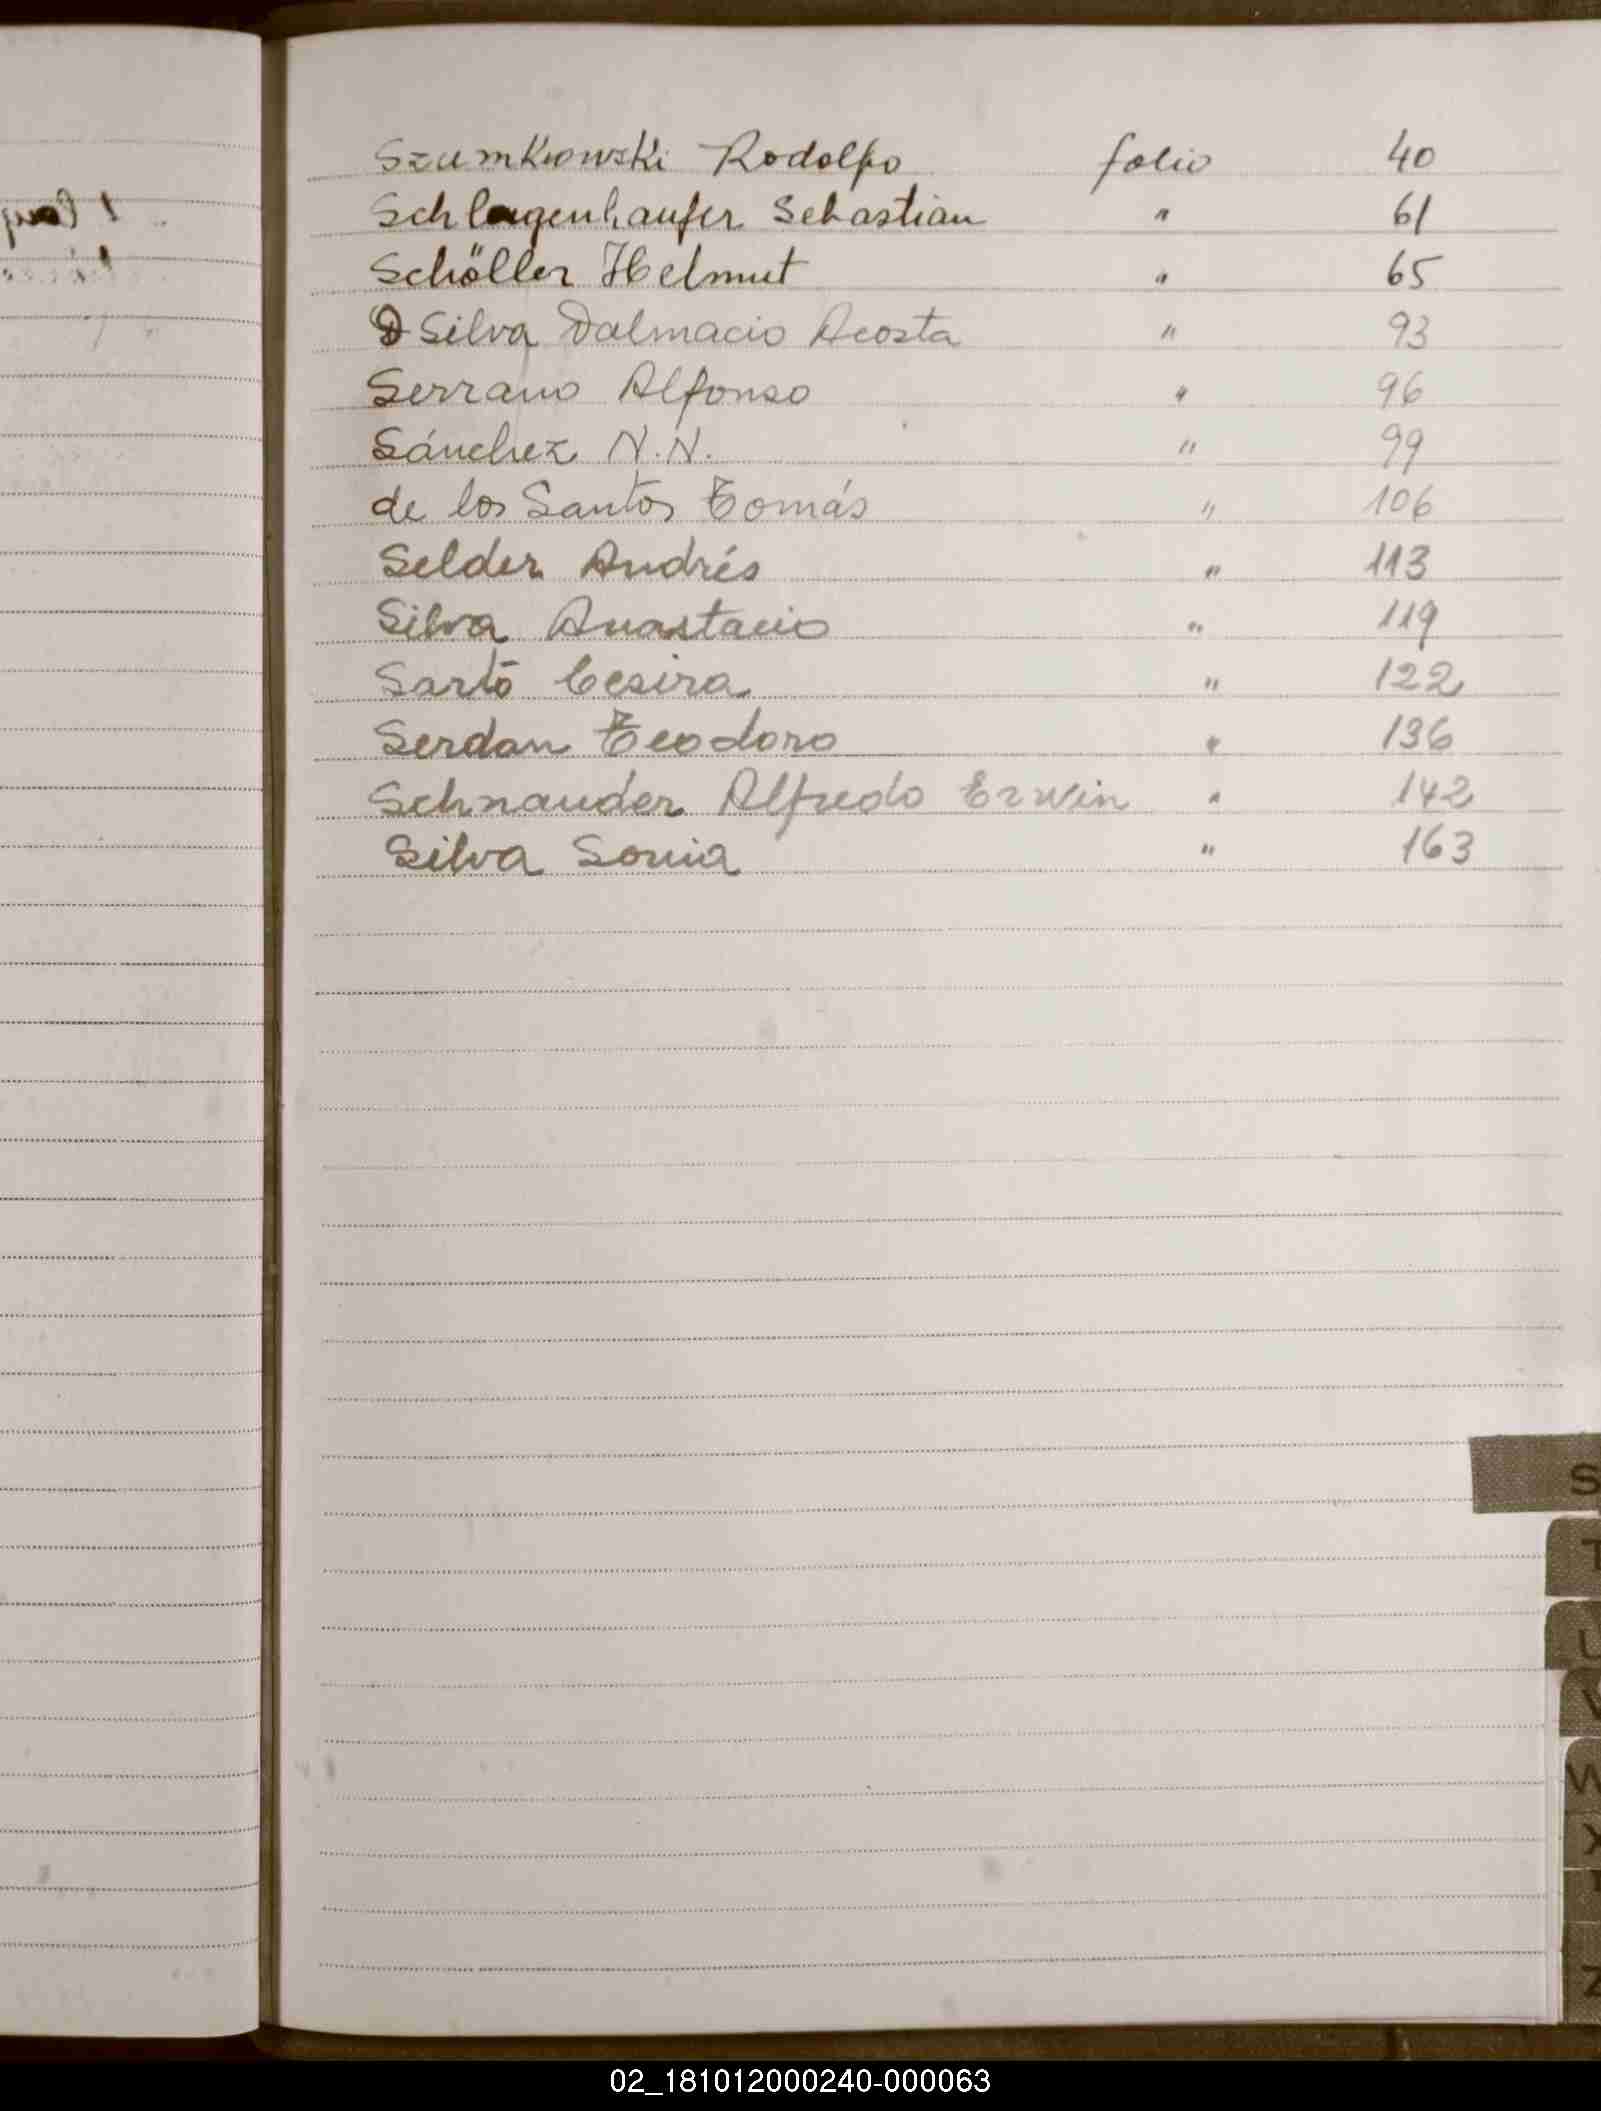 Szumkowski Rodolfo folio 40
Schlagenhaufer Sebastian " 61
Schöller Helmut " 65
D Silva Dalmacio Acosta " 93
Serrano Alfonso " 96
Sánchez N.N. " 99
de los Santos Tomás " 106
Selder Andrés " 113
Silva Anastacio " 119
Sartó Cesira " 122
Serdan Teodoro " 136
Schnauder Alfredo Erwin " 142
Silva Sonia " 163
S
T
U
V
W
X
Z
02_181012000240-000063